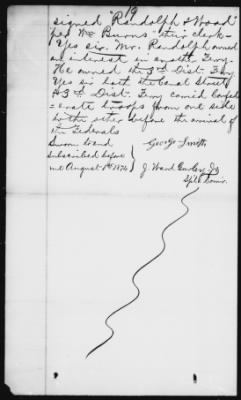 9
signed "Randolph & Wood"
per Wm Burns" their clerk —
Yes sir. Mr. Randolph owned
an interest in another Ferry.
He owned the 3rd Dist. Ferry
Yes sir both the Canal Street
& 3rd Dist. Ferry carried Confed
erate troops from one side
to the other before the arrival of
the Federals
Sworn to and
subscribed before
me August 1st 1874
George Smith
J Ward Gurley Jr
Spl Comr.